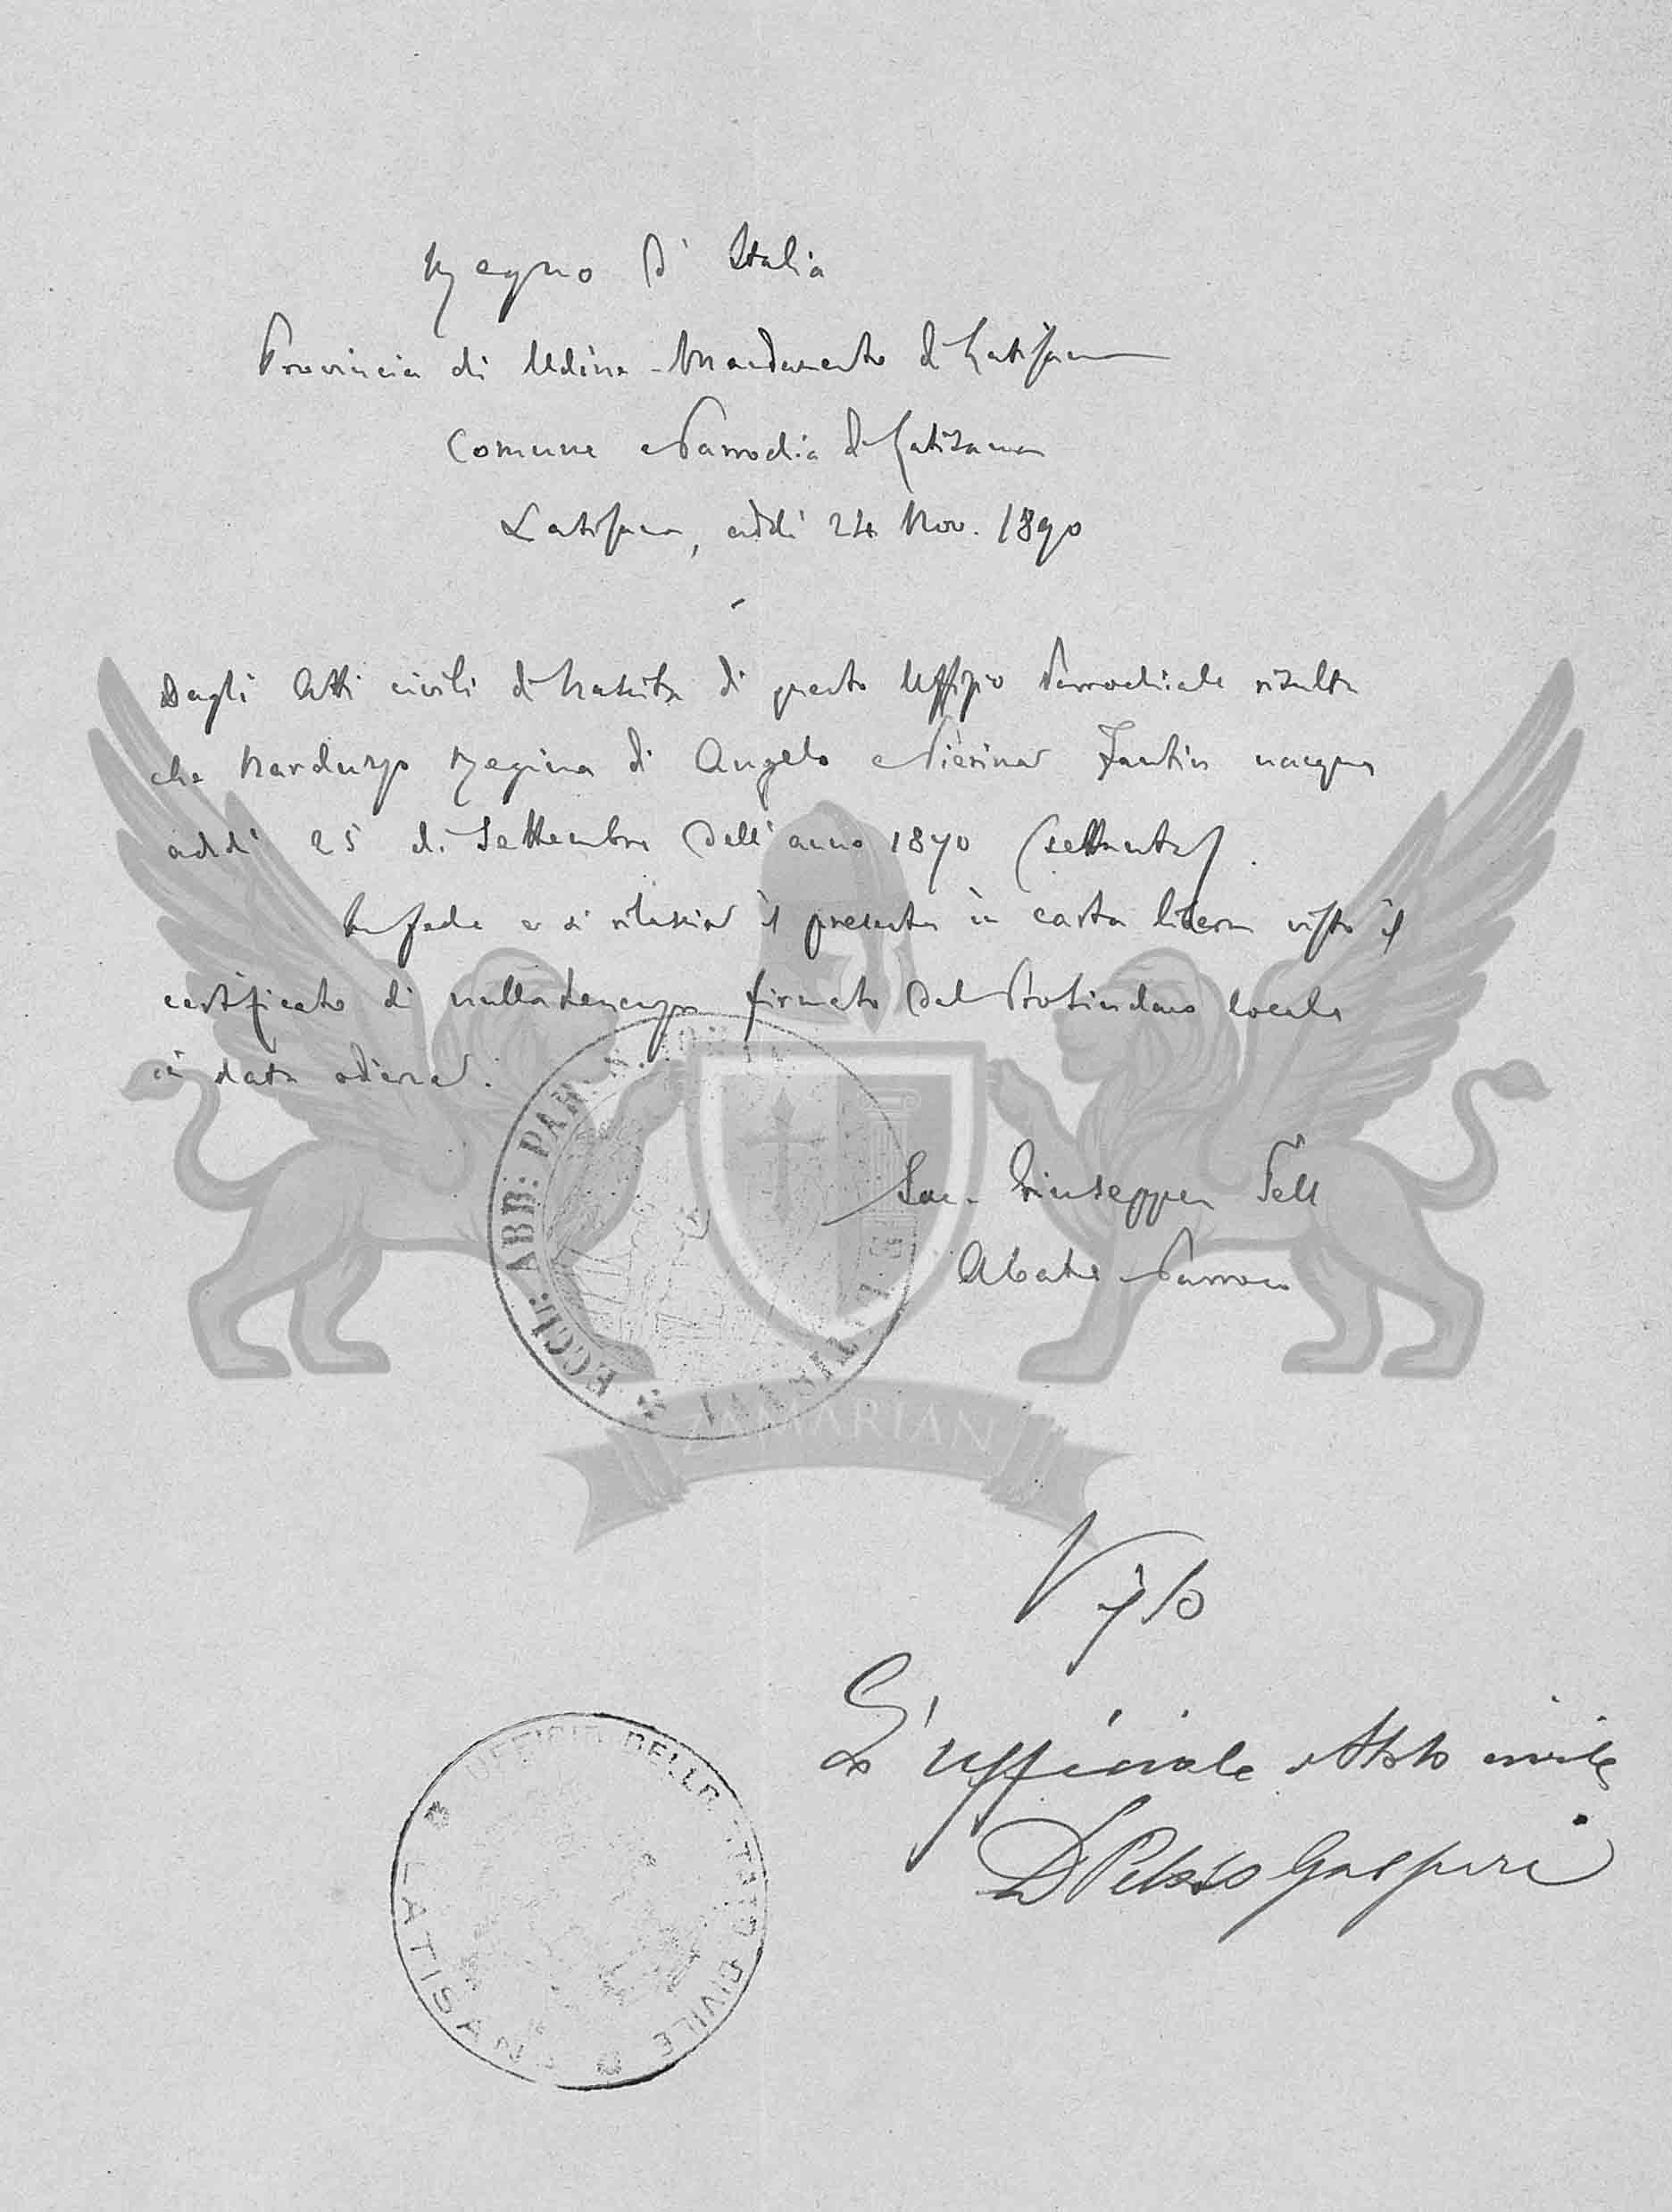 Regno d'Italia
Provincia di Udine - Mandamento di Latisana
Comune e Parrochia di Latisana
Latisana, addì 24 Nov. 1890
Dagli Atti civili di Nascita di questo Uffizio Parrochiale risulta
che Narduzzo Regina di Angelo e Pierina Fantin nacque
addì 25 di Settembre dell'anno 1870 (settanta).
In fede e si rilascia il presente in carta libera visto il
certificato di nullatenenza firmato dal Prosindaco locale
in data odierna.
S. ECCL: ABB: PAR
Sac. Giuseppe Tell
Abate Parroco
ZAMARIAN
Visto
L'ufficiale Stato civile
D Gaspari
UFFICIO DELLO STATO CIVILE
LATISANA